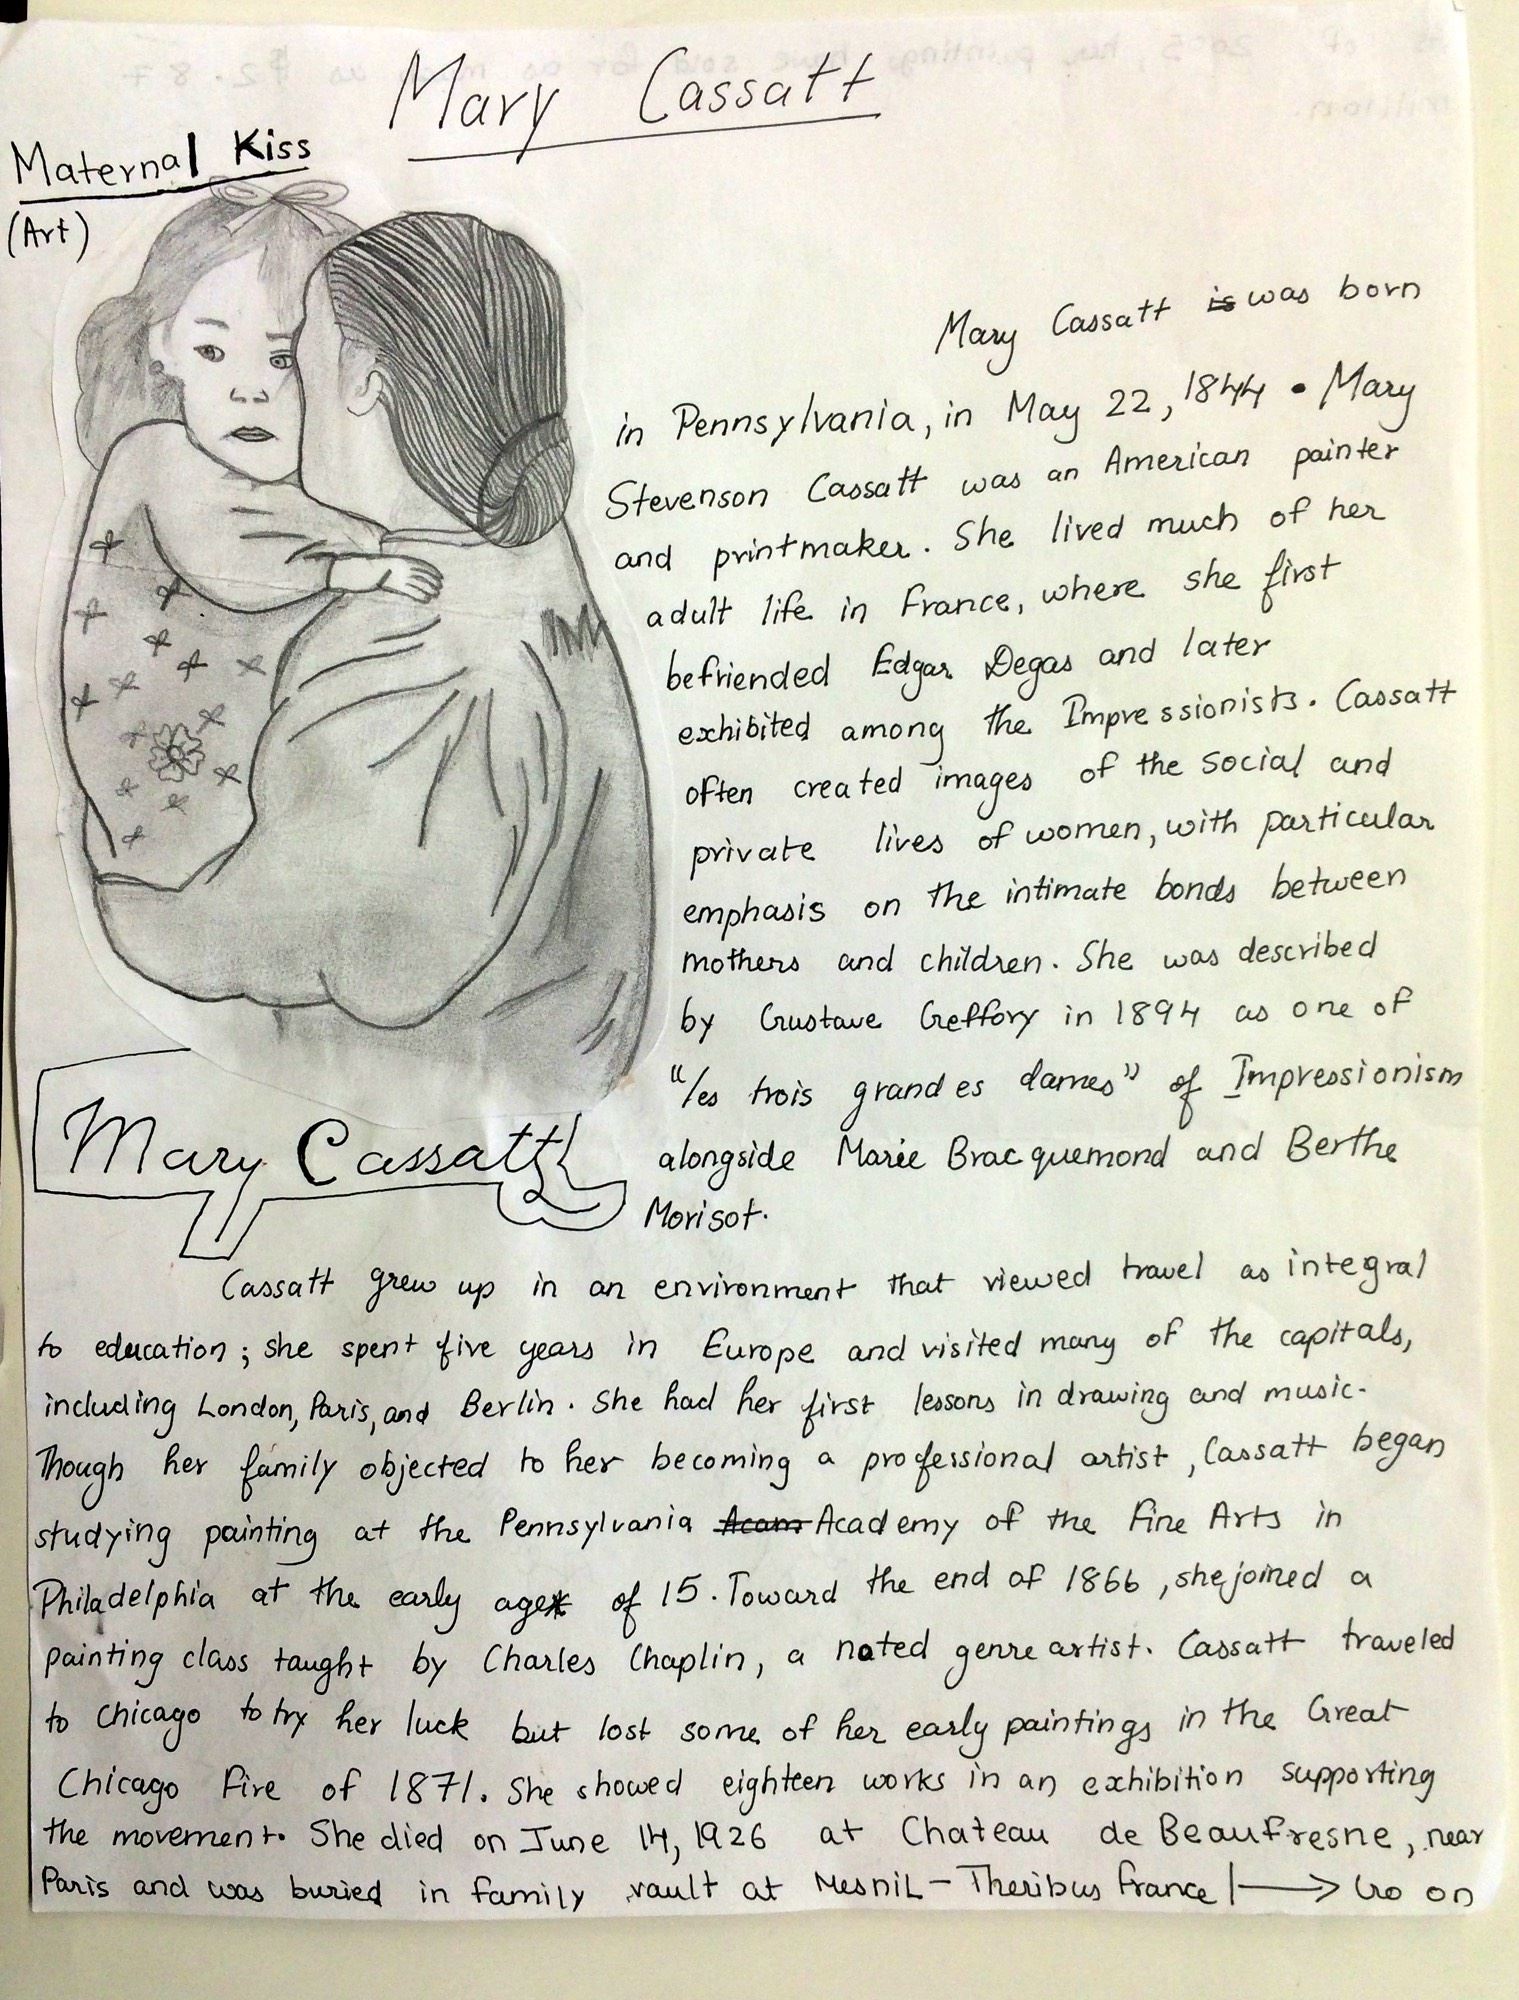 Mary Cassatt
Maternal Kiss
(Art)
Mary Cassatt is was born
in Pennsylvania, in May 22, 1844. Mary
Stevenson Cassatt was an American painter
and printmaker. She lived much of her
adult life in France, where she first
befriended Edgar Degas and later
exhibited among the Impressionists. Cassatt
often created images of the social and
private lives of women, with particular
emphasis on the intimate bonds between
mothers and children. She was described
by Gustave Geffory in 1894 as one of
"les trois grandes dames" of Impressionism
alongside Marie Bracquemond and Berthe
Morisot.
Mary Cassatt
Cassatt grew up in an environment that viewed travel as integral
to education; she spent five years in Europe and visited many of the capitals,
including London, Paris, and Berlin. She had her first lessons in drawing and music.
Though her family objected to her becoming a professional artist, Cassatt began
studying painting at the Pennsylvania Academy of the Fine Arts in
Philadelphia at the early age of 15. Toward the end of 1866, she joined a
painting class taught by Charles Chaplin, a noted genre artist. Cassatt traveled
to Chicago to try her luck but lost some of her early paintings in the Great
Chicago Fire of 1871. She showed eighteen works in an exhibition supporting
the movement. She died on June 14, 1926 at Chateau de Beaufresne, near
Paris and was buried in family vault at Mesnil-Theribus France → Go on